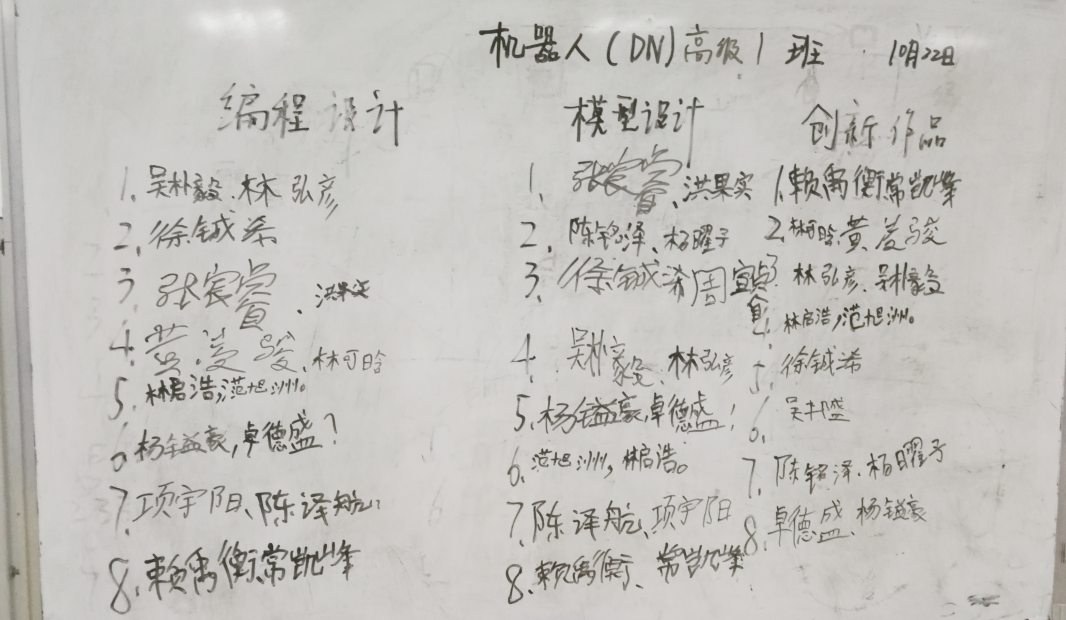 机器人(DN)高级1班 10月22日
编程设计
1. 吴朴毅、林弘彦
2. 徐铖浠
3 张宸睿、洪果实
4. 黄羑骏、林可晗
5. 林启浩,范旭洲。
6. 杨镒豪,卓德盛?
7. 项宇阳、陈泽航
8. 赖禹衡、常凯峰
模型设计
1. 张宸睿、洪果实
2. 陈铭泽、杨曜子
3. 徐铖浠 周宜
4. 吴朴毅、林弘彦
5. 杨镒豪,卓德盛!
6. 范旭洲,林启浩。
7. 陈泽航、项宇阳
8. 赖禹衡、常凯峰
创新作品
1. 赖禹衡 常凯峰
2. 林可晗 黄羑骏
3 林弘彦、吴朴毅
4. 林启浩,范旭洲。
5. 徐铖浠
6.
7. 陈铭泽、杨曜子
8. 卓德盛、杨镒豪